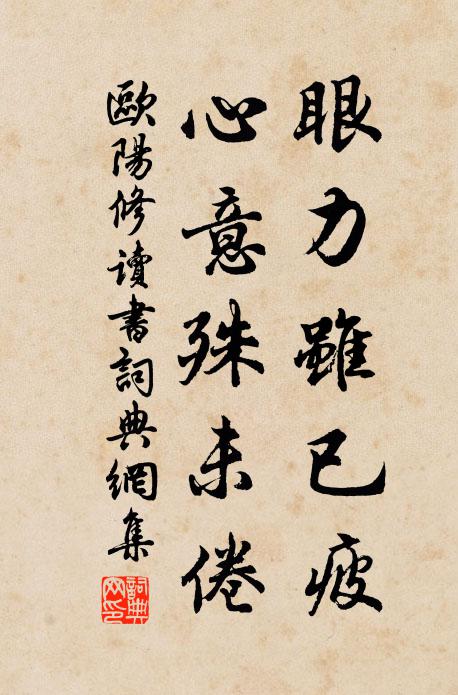 眼力雖已疲
心意殊未倦
歐陽修讀書詞典網集
詞典
网印